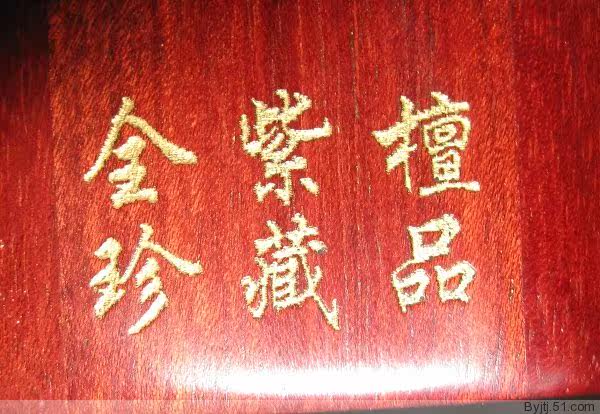 全紫檀
珍藏品
Byjtj.51.com